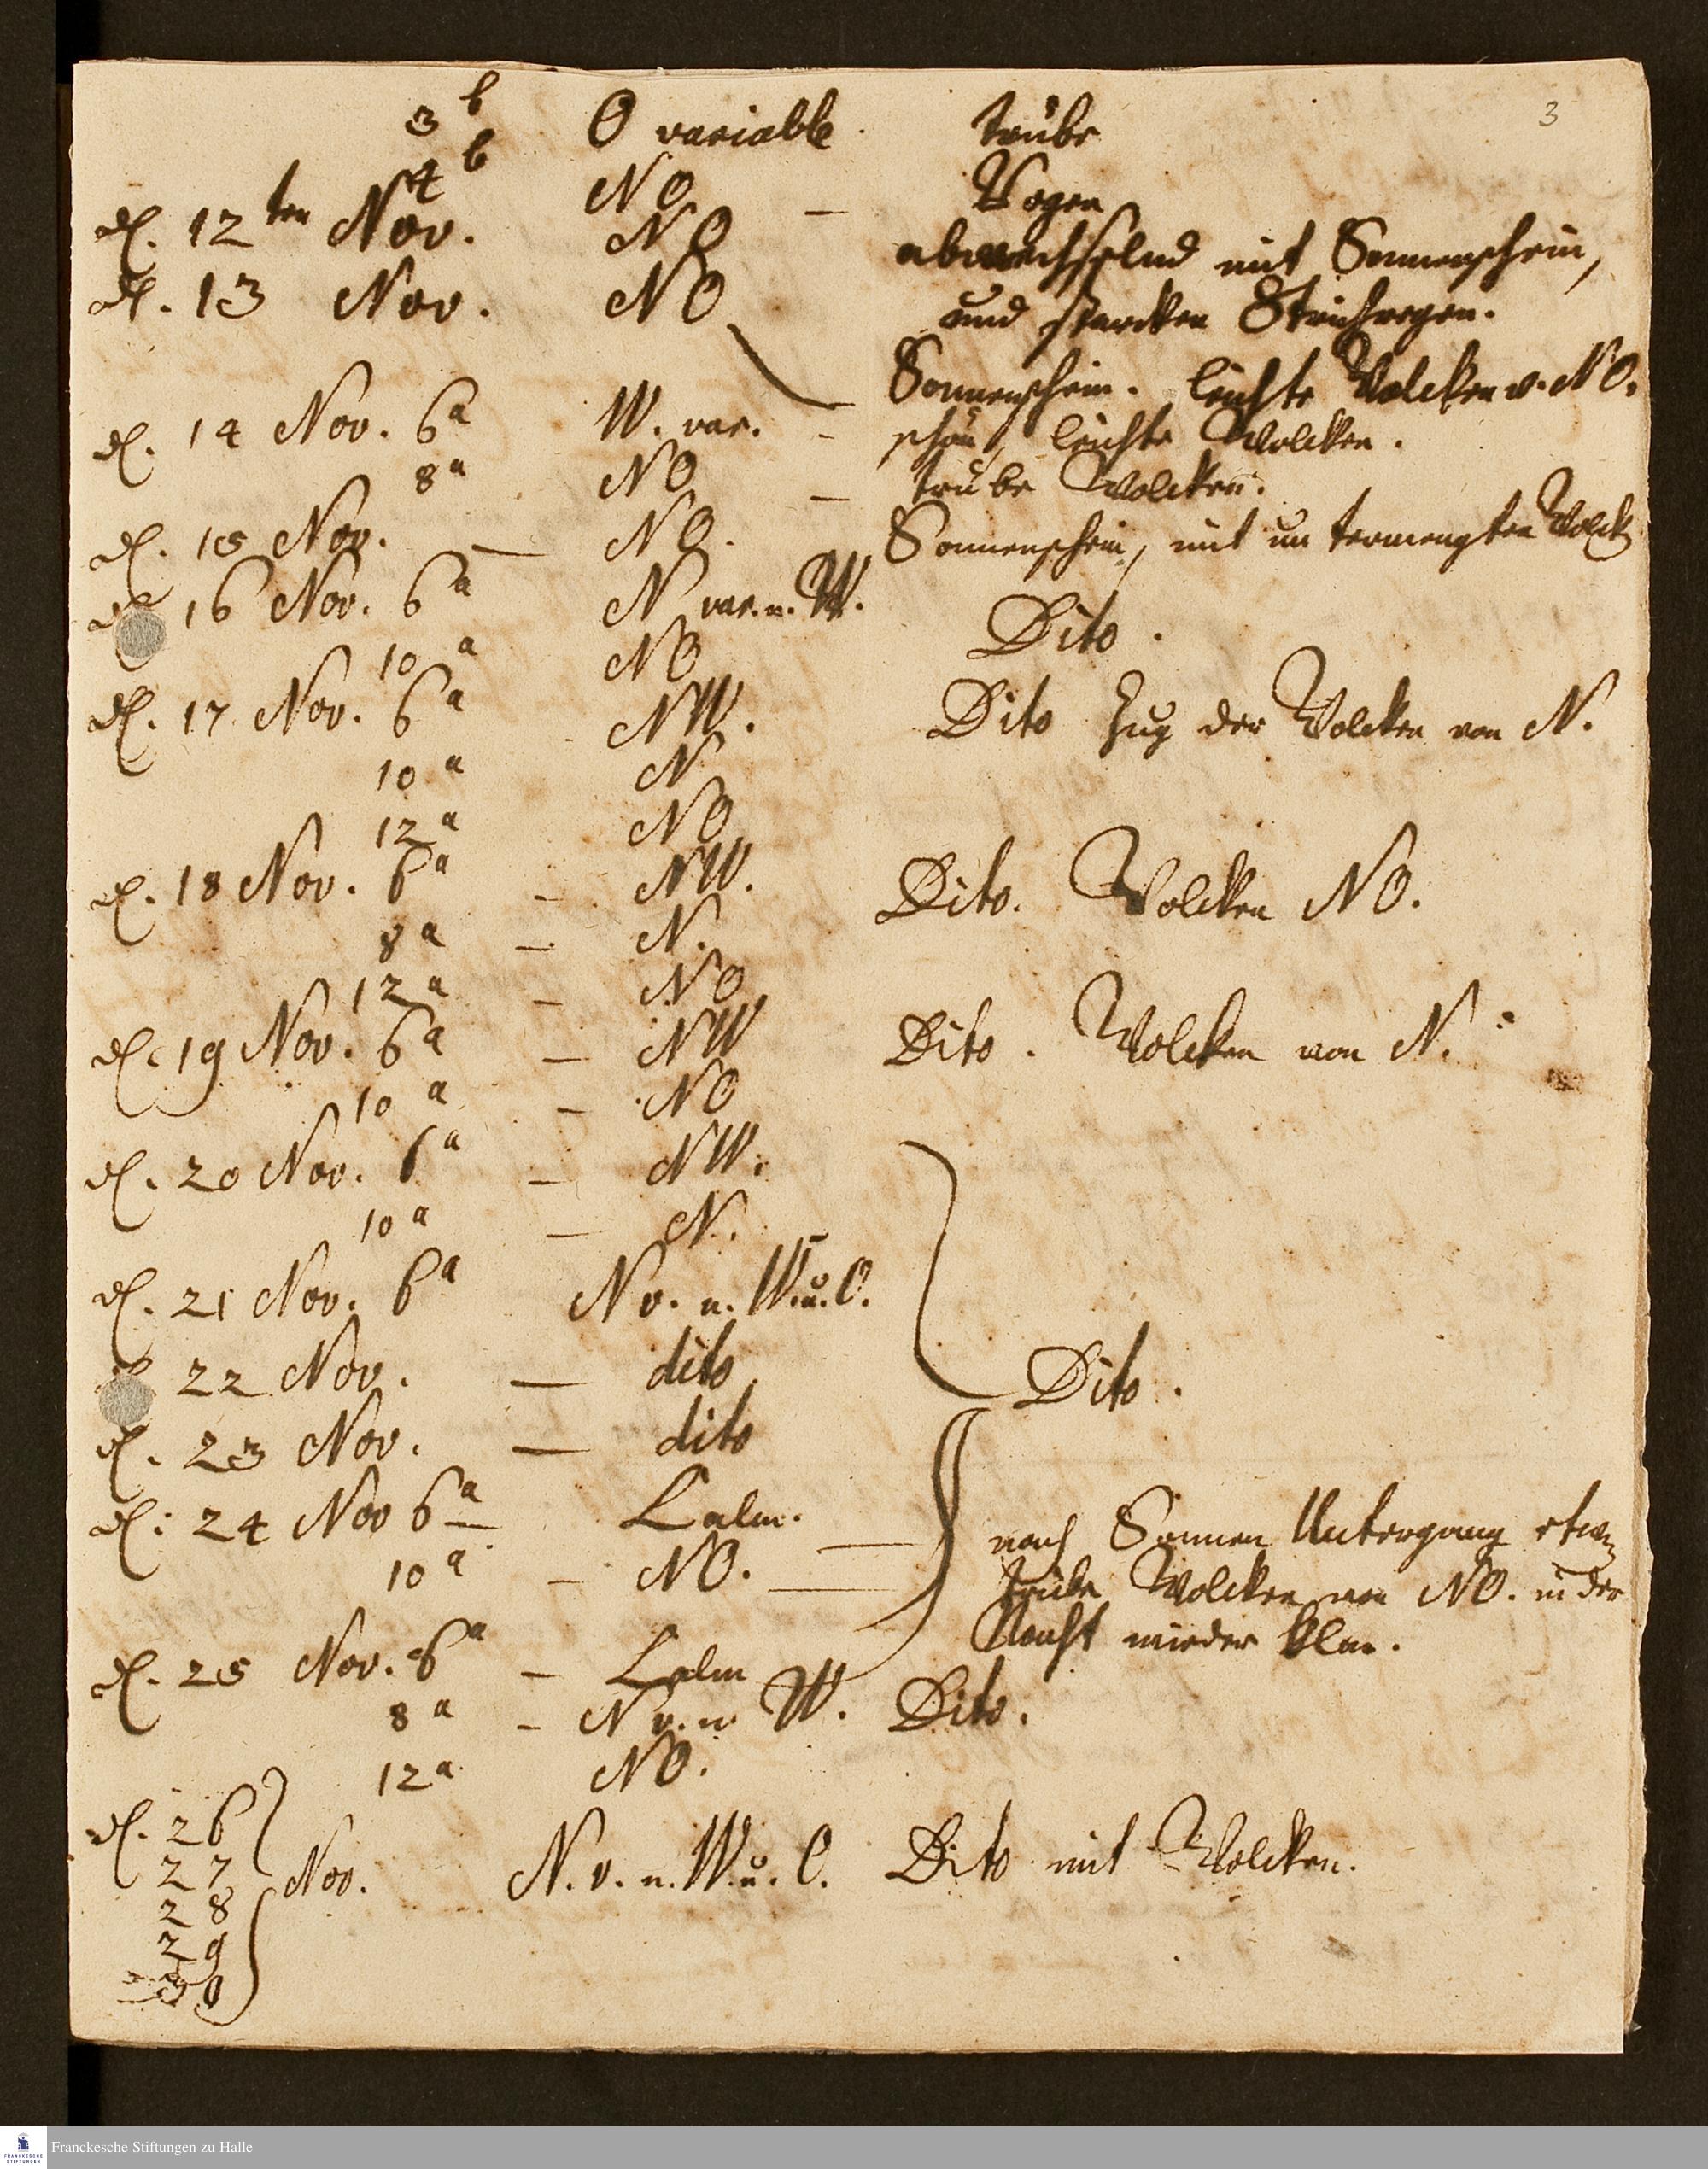 3
3 b O variable. trübe
4 b NO — Regen
d. 12ten Nov. NO abwechsselnd mit Sonnenschein,
d. 13 Nov. NO und starcken Strichregen.
Sonnenschein. leichte Wolcken v. NO.
d. 14 Nov. 6a W. var. - schön, leichte Wolcken.
8a NO — trübe Wolcken.
d. 15 Nov. — NO. Sonnenschein, mit untermengten Wolck
d. 16 Nov. 6a N var. u. W. Dito.
10 a NO
d. 17 Nov. 6a NW. Dito Zug der Wolcken von N.
10 a N
12 a NO
d. 18 Nov. 6a - NW. Dito. Wolcken NO.
8 a — N.
12 a — NO
d. 19 Nov. 6a — NW Dito. Wolcken von N.
10 a — NO
d. 20 Nov. 6a — NW.
10 a — N.
d. 21 Nov. 6a N v. n. W. u. O.
d. 22 Nov. — dito Dito.
d. 23 Nov. — dito
d. 24 Nov 6a — Calm. nach Sonnen Untergang etw
10 a — NO. — trübe Wolcken von NO. in der
Nacht wieder klar.
d. 25 Nov. 6a — Calm
8 a - N v. n W. Dito.
12 a NO.
d. 26
27 Nov. N. v. n. W. u. O. Dito mit Wolcken.
28
29
30
Franckesche Stiftungen zu Halle
FRANCKESCHE
STIFTUNGEN